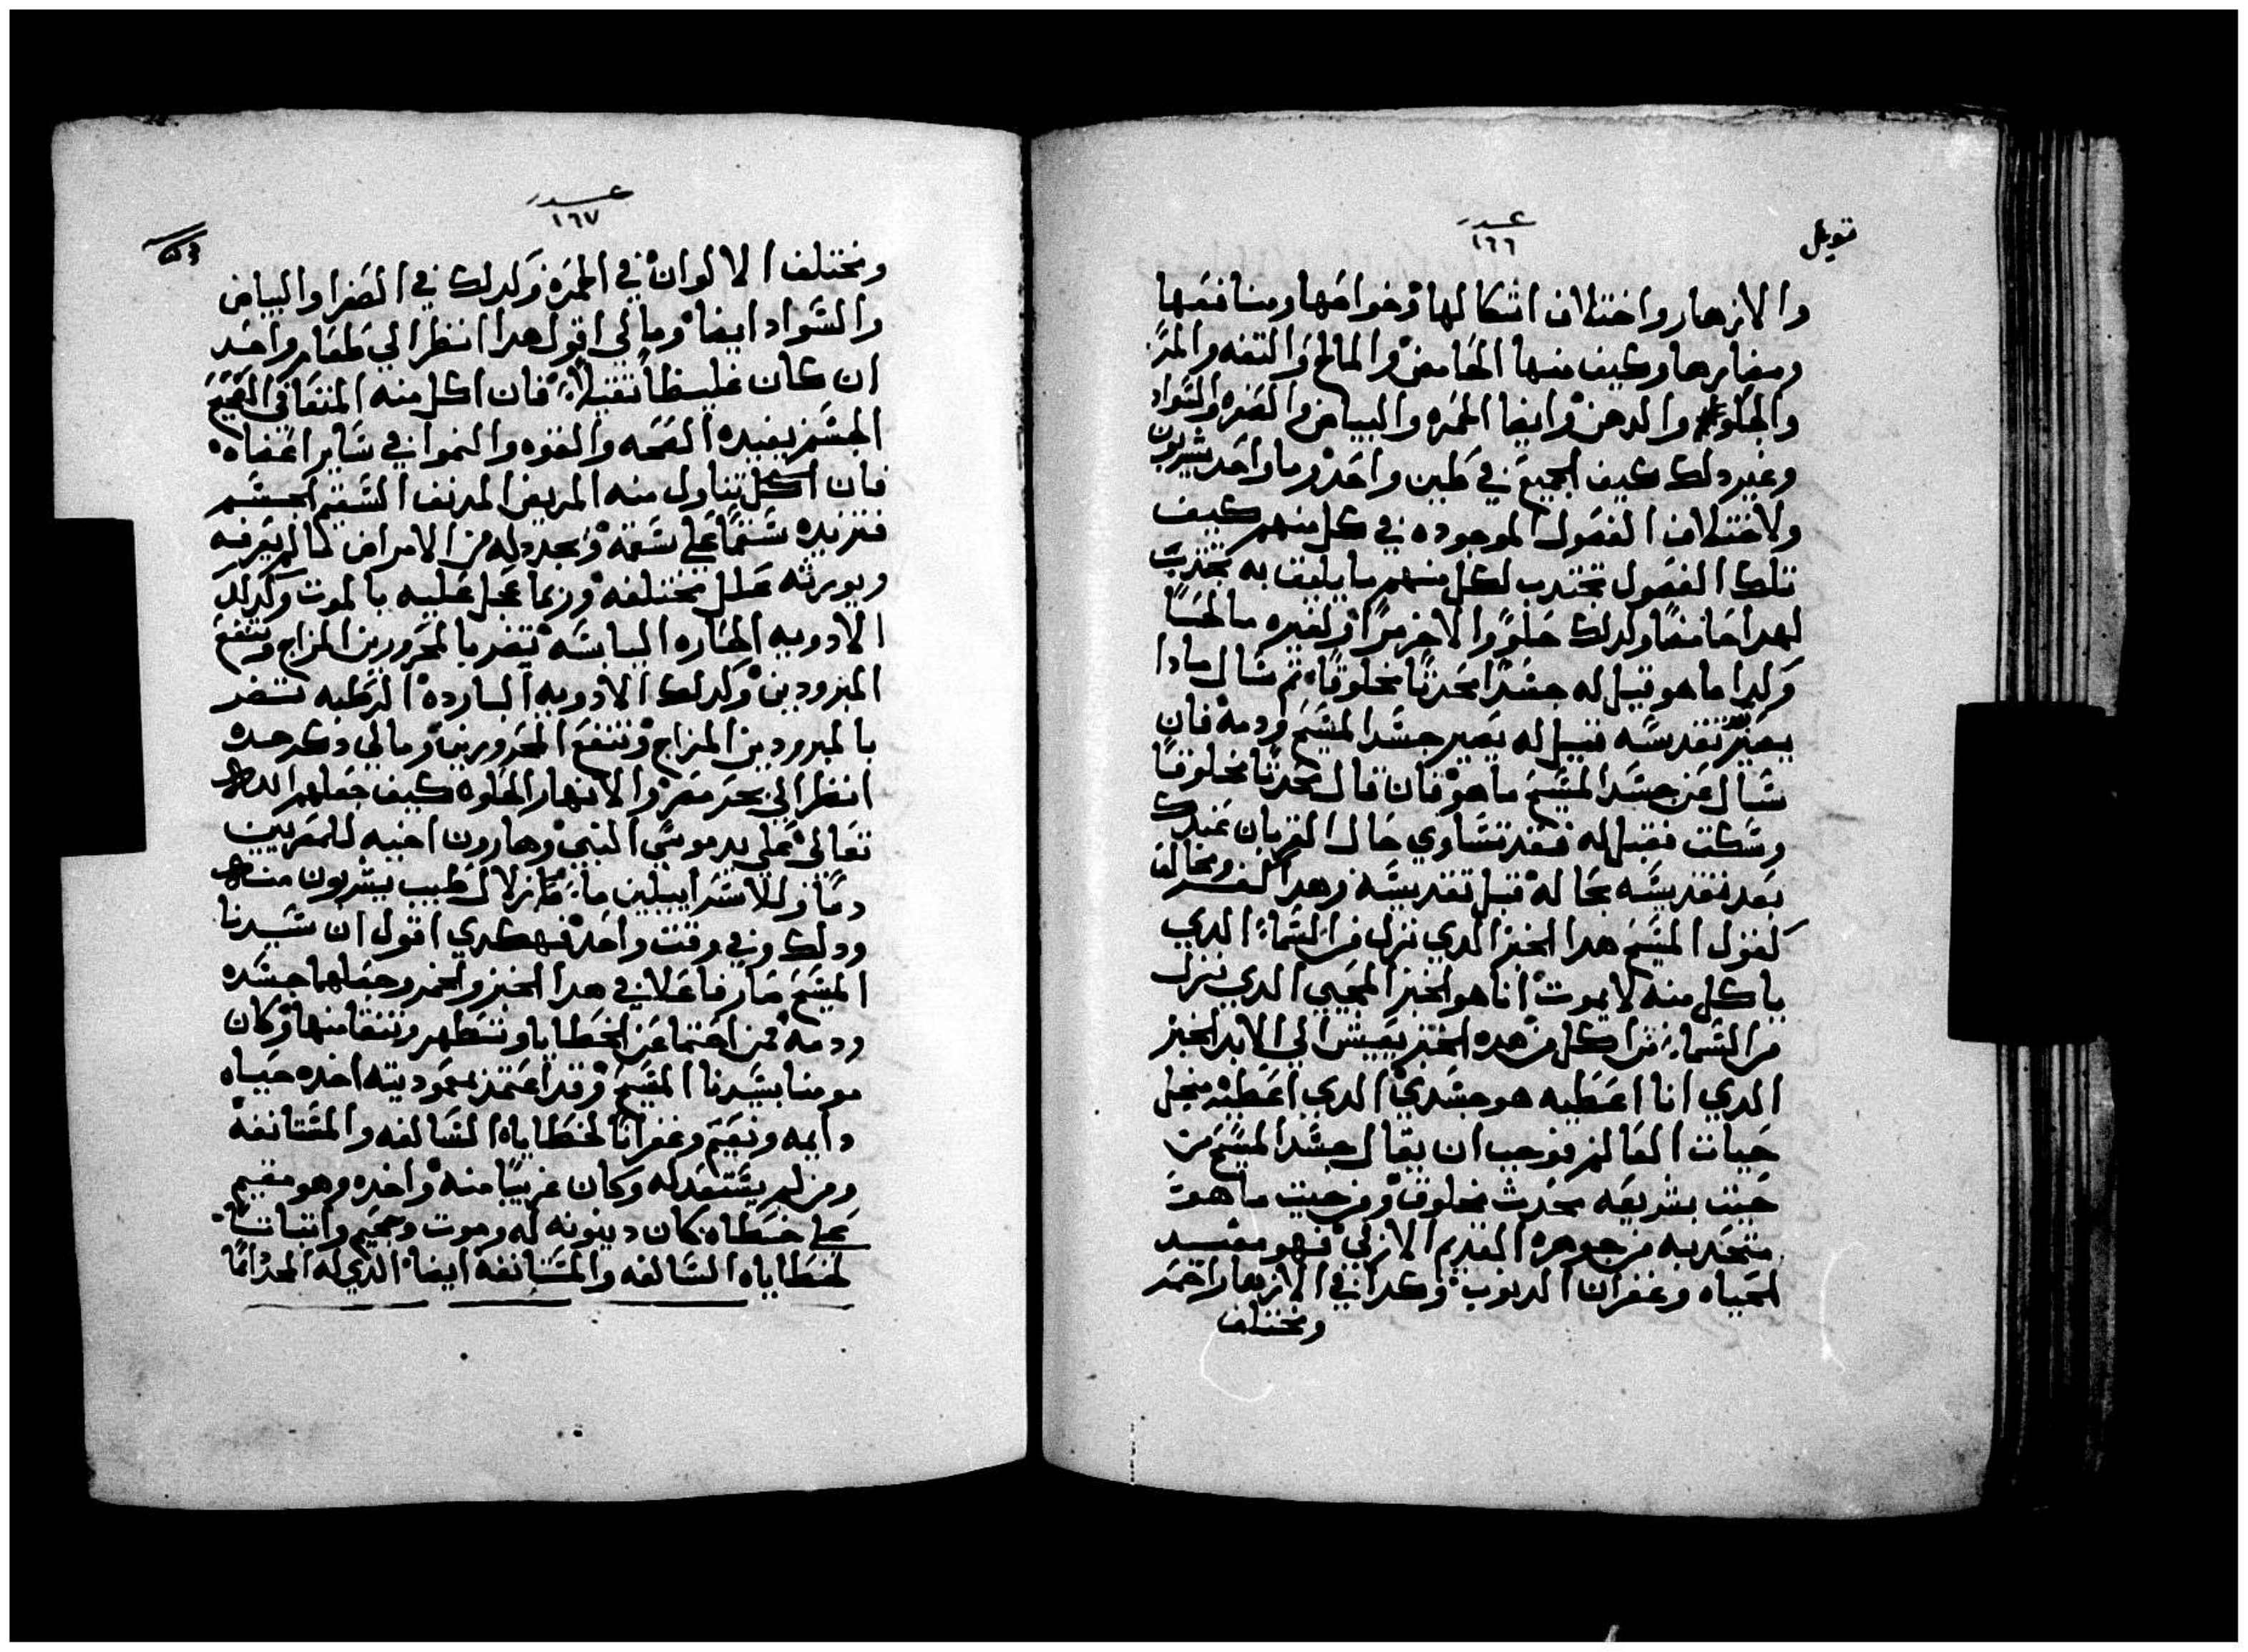 قوبل
عدد
١٦٦
والازهار واختلاف اشكالها وخواصها ومنافعها
ومضارها وكيف منها الحامض والمالح والتفه والمر
والحلو والدهن وايضا الحمره والبياض والصفره والسواد
وغير دلك كيف الجميع في طين واحد وما واحد يشربون
ولاختلاف الفصول الموجوده في كل منهم كيف
تلك الفصول تجتدب لكل منهم ما يليق به تجتدب
لهدا حامضا وكدلك حلوا والاخر مرا ولغيره مالحا
وكدا ما هو قيل له جسدا محدثا مخلوقا ثم سال مادا
يصير تقديسه قيل له يصير جسد المسيح ودمه فان
سال عن جسد المسيح ما هو فان قال محدثا مخلوقا
وسكت فقيل له فقد تساوي حال القربان عندك
بعد تقديسه بحاله قبل تقديسه وهدا كفر ومخالف
لقول المسيح هدا الخبز الدي نزل من السما الدي
ياكل منه لا يموت انا هو الخبز المحيي الدي نزل
من السما من اكل من هده الخبز يعيش الي الابد الخبز
الدي انا اعطيه هو جسدي الدي اعطيه من اجل
حيات العالم فوجب ان يقال جسد المسيح من
حيت بشريعه محدث مخلوق ومن حيت ما هو
متحد به من جوهره القديم الازلي فهو مفيد
لحياه وغفران الدنوب وكدا في الازهار احمر
ومختلف
عدد
١٦٧
ومختلف الالوان في الحمره وكدلك في الصفرا والبياض
والسواد ايضا وما لي اقول هدا انظر الي طعام واحد
ان كان غليظا ثقيلا فان اكل منه المتعافي الصحيح
الجسم يفيده الصحه والقوه والنموا في ساير اعضاه
فان اكل تناول منه المريض المدنف السقيم الجسم
فتزيده سقما علي سقمه ويجدد له من الامراض لما لم يعرفه
ويورثه علل مختلفه وربما عجل عليه بالموت وكدلك
الادويه الحاره اليابسه تضر بالمحرورين المزاج وتنفع
المبرودين وكدلك الادويه البارده الرطبه تضر
بالمبرودين المزاج وتنفع المحرورين وما لي دكر هده
انظر الي بحر مصر والانهار الحلوه كيف جعلهم الله
تعالي علي يد موسي النبي وهارون اخيه للمصريين
دما وللاسراييلين ما زلال طيب يشربون منه
ودلك في وقت واحد فهكدي اقول ان سيدنا
المسيح صار فاعلا في هدا الخبز والخمر وجعلهما جسده
ودمه فمن احتما عن الخطايا وتطهر وتنقا منها وكان
مومنا بسيدنا المسيح وقد اعتمد بمعموديته اخده حياه
دايمه ونعيم وغفرانا لخطاياه السالفه والمستانفه
ومن لم يستعد له وكان غريبا منه واخده وهو مقيم
علي خطاه كان دينونه له وموت وجحيم واثباتا
لخطاياه السالفه والمستانفه ايضا الدي له المجد دايما